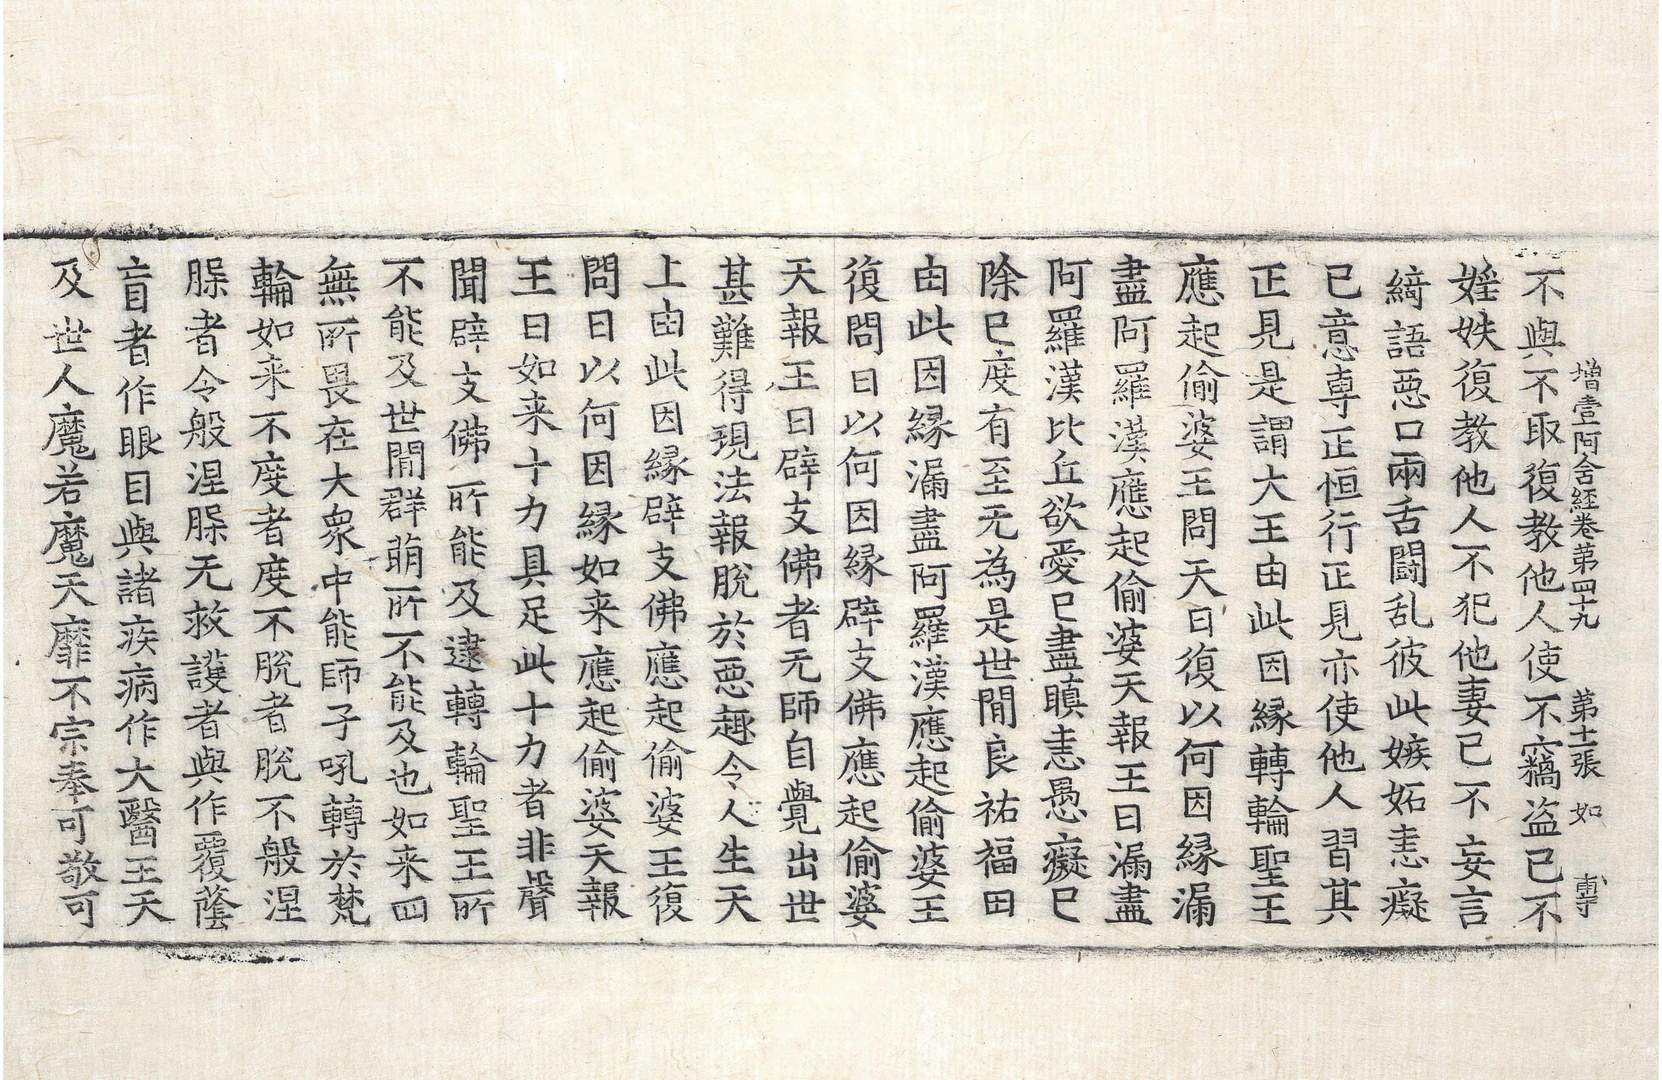 增壹阿含經卷第四十九 第十一張 如 專
不與不取復教他人使不竊盜已不
婬妷復教他人不犯他妻已不妄言
綺語惡口兩舌鬪乱彼此嫉妬恚癡
已意専正恒行正見亦使他人習其
正見是謂大王由此因縁轉輪聖王
應起偷婆王問天曰復以何因縁漏
盡阿羅漢應起偷婆天報王曰漏盡
阿羅漢比丘欲愛已盡瞋恚愚癡已
除已度有至无為是世間良祐福田
由此因縁漏盡阿羅漢應起偷婆王
復問曰以何因縁辟支佛應起偷婆
天報王曰辟支佛者无師自覺出世
甚難得現法報脫於惡趣令人生天
上由此因縁辟支佛應起偷婆王復
問曰以何因縁如来應起偷婆天報
王曰如来十力具足此十力者非聲
聞辟支佛所能及逮轉輪聖王所
不能及世間群萌所不能及也如来四
無所畏在大衆中能師子吼轉於梵
輪如来不度者度不脫者脫不般涅
槃者令般涅槃无救護者與作覆蔭
盲者作眼目與諸疾病作大醫王天
及世人魔若魔天靡不宗奉可敬可